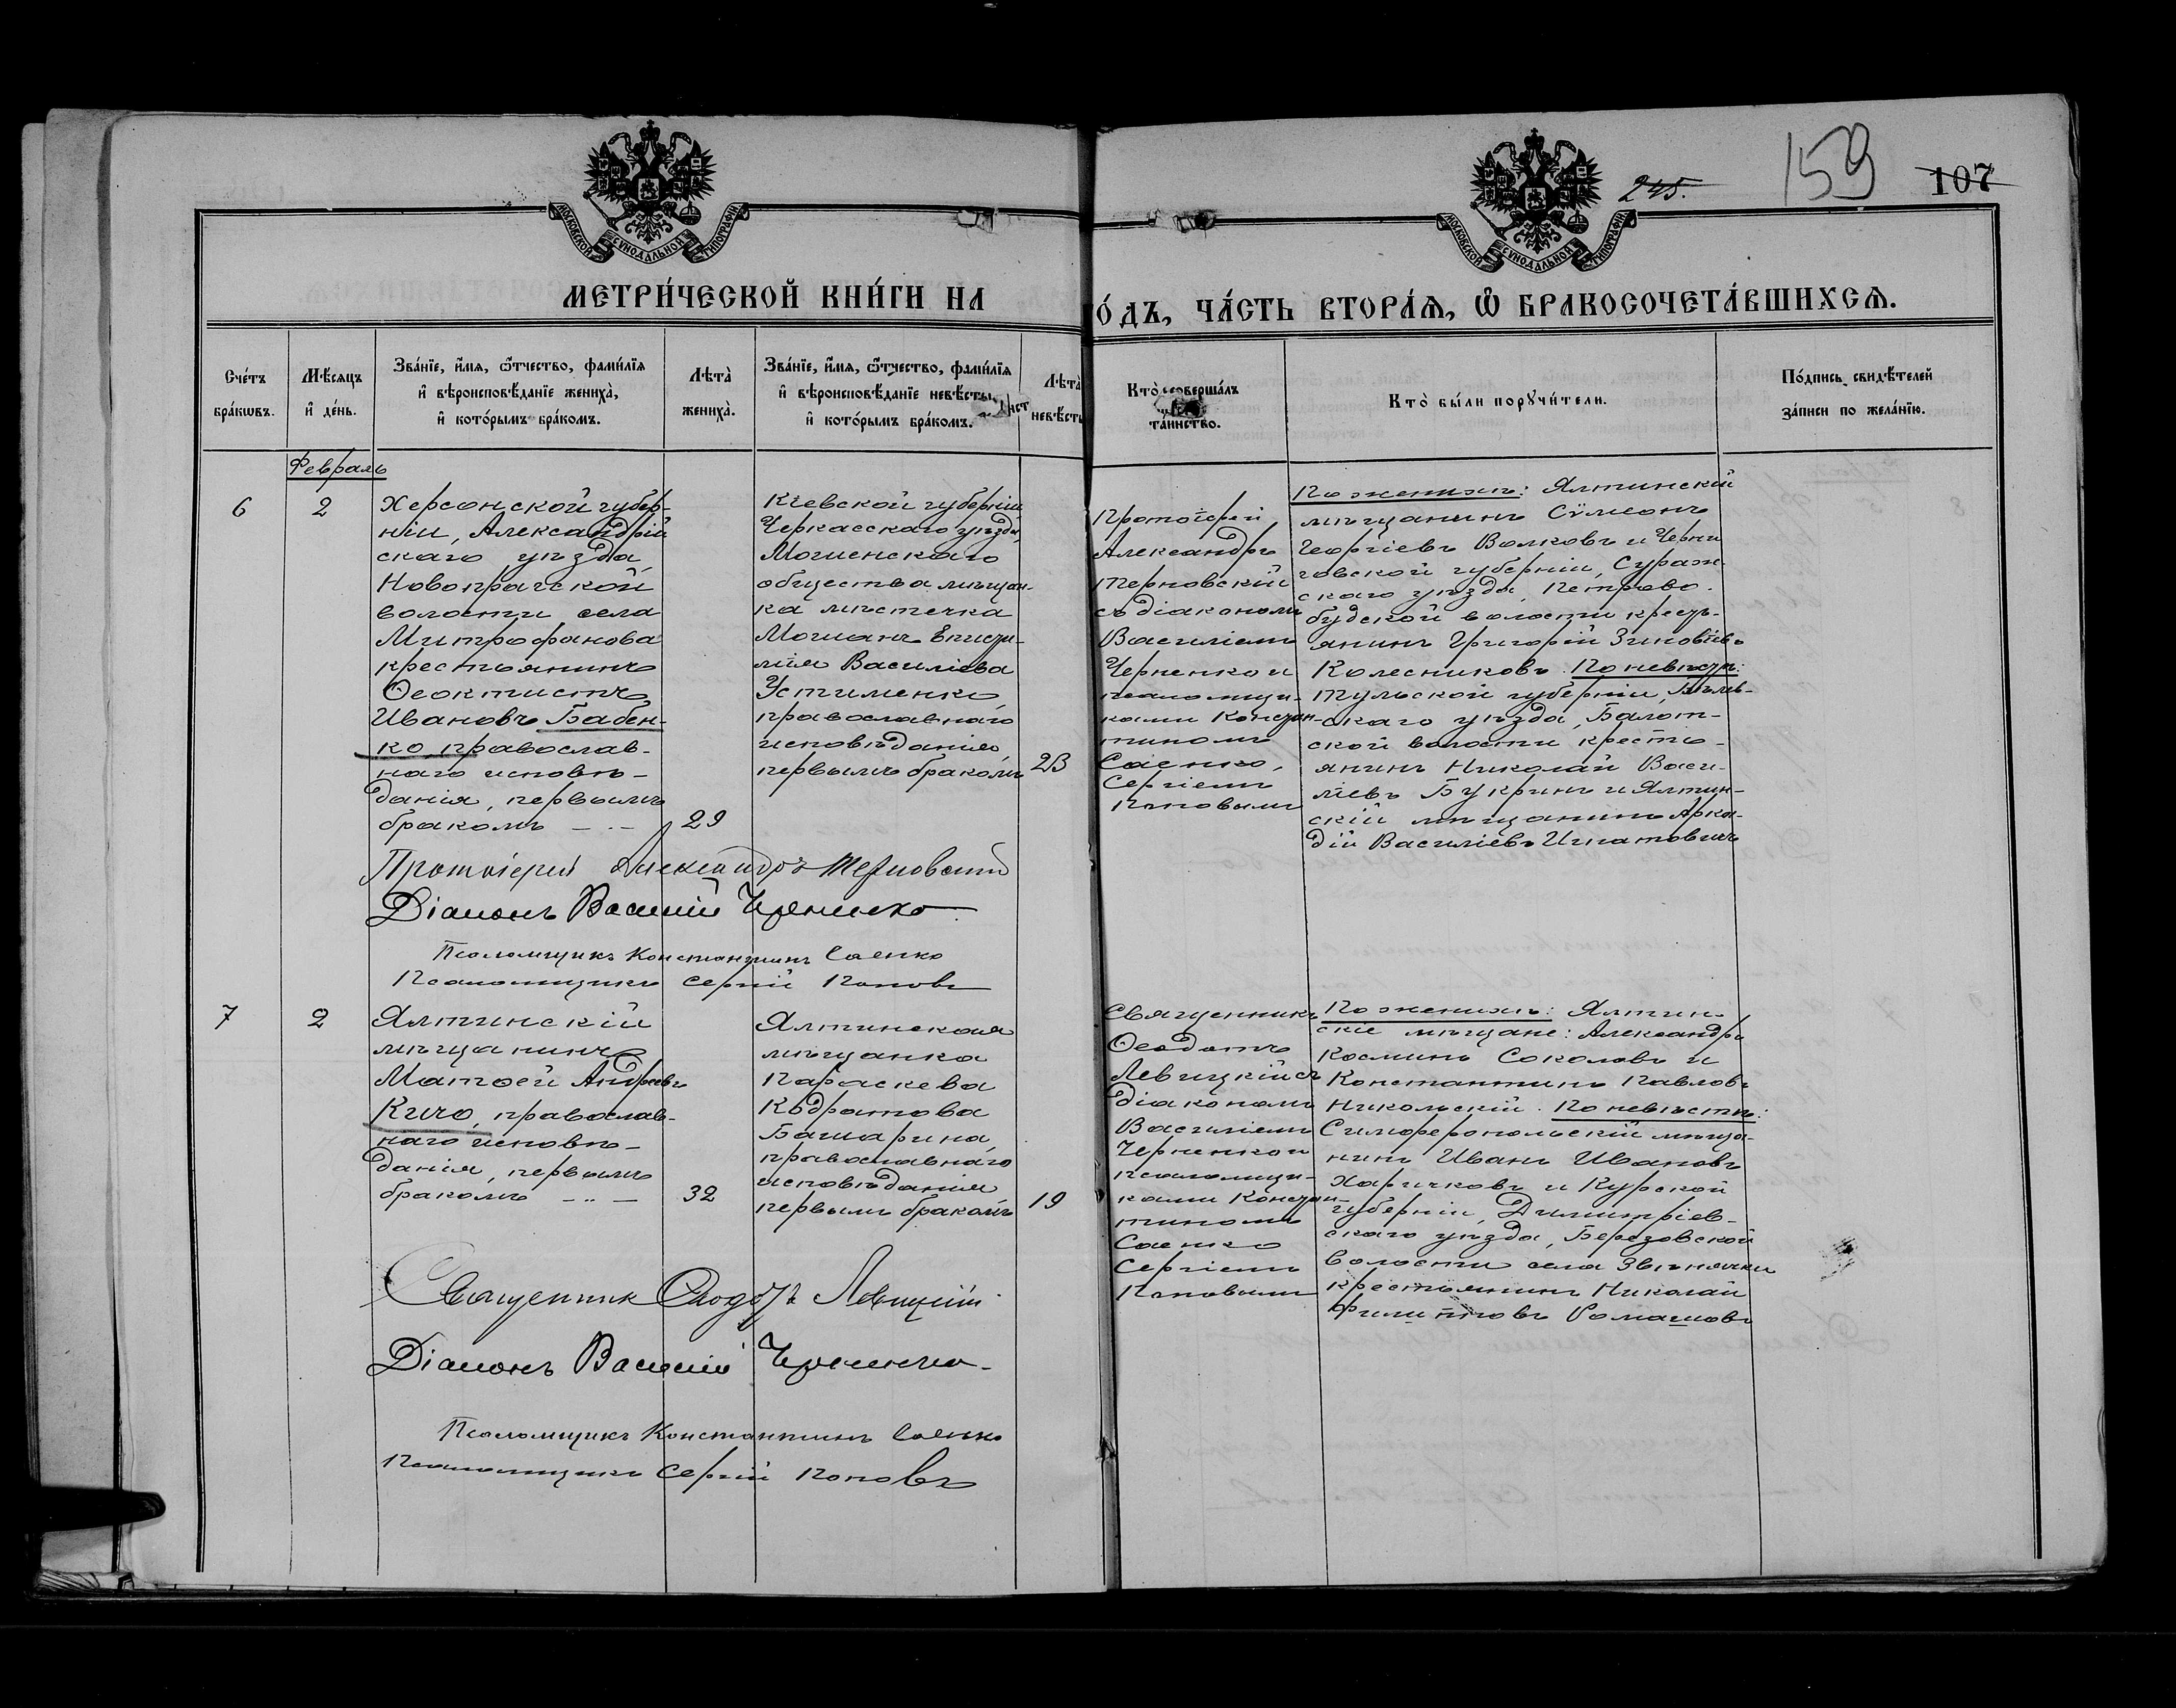 245.
159
107
МОСКОВСКОЙ СѴНОДАЛЬНОЙ ТИПОГРАФІИ
МОСКОВСКОЙ СѴНОДАЛЬНОЙ ТИПОГРАФІИ
МЕТРИ́ЧЕСКОЙ КНИ́ГИ НА
О́ДЪ, ЧА́СТЬ ВТОРА́Ѧ, Ѽ БРАКОСОЧЕТА́ВШИХСѦ.
Сче́тъ
бра́кѡвъ.
Мѣ́сяцъ
и҆ де́нь.
Зва́нїе, и҆́мя, ѻ҆́тчество, фами́лїя
и҆ вѣроисповѣ́данїе жениха̀,
и҆ кото́рымъ бра́комъ.
Лѣта̀
жениха̀.
Зва́нїе, и҆́мя, ѻ҆́тчество, фами́лїя
и҆ вѣроисповѣ́данїе невѣ́сты,
и҆ кото́рымъ бра́комъ.
Лѣта̀
невѣ́сты
Кто̀ соверша́лъ
та́инство.
Кто̀ бы́ли порꙋчи́тели.
По́дпись свидѣ́телей
за́писи по жела́нїю.
Февраль
6
2
Херсонской губер-
ніи, Александрій
скаго уѣзда,
Новопрагской
волости села
Митрофанова
крестьянинъ
Ѳеоктистъ
Ивановъ Бабен-
ко, православ-
наго исповѣ-
данія, первымъ
бракомъ
29
Кіевской губерніи
Черкасскаго уѣзда,
общества мѣщан-
ка мѣстечка
лія Василіева
Устименко,
православнаго
исповѣданія,
первымъ бракомъ
23
Протоіерей
Александръ
Терновскій
съ діакономъ
Василіемъ
Черненко и
псаломщи-
ками Констан-
тиномъ
Саенко,
Сергіемъ
Поповымъ
По женихѣ: Ялтинскій
мѣщанинъ Сѵмеонъ
Георгіевъ Волковъ и Черни
говской губерніи, Сураж
скаго уѣзда, Петрово-
будской волости кресть-
янинъ Григорій Зиновіевъ
Колесниковъ. По невѣстѣ:
Тульской губерніи, Бѣлев-
скаго уѣзда, Болот-
ской волости кресть-
янинъ Николай Васи-
ліевъ Букринъ и Ялтин-
скій мѣщанинъ Арка-
дій Василіевъ Игнатовичъ
Протоіерей Александръ Терновскій
Діаконъ Василій Черненко
Псаломщикъ Константинъ Саенко
Псаломщикъ Сергій Поповъ
7
2
Ялтинскій
мѣщанинъ
Матѳей Андреевъ
Кичо, православ-
наго исповѣ-
данія, первымъ
бракомъ
32
Ялтинская
мѣщанка
Параскева
Кодратова
православнаго
исповѣданія,
первымъ бракомъ
19
Священникъ
Ѳеодотъ
Левицкій съ
діакономъ
Василіемъ
Черненко и
псаломщи-
ками Констан-
тиномъ
Саенко
Сергіемъ
Поповымъ
По женихѣ: Ялтин-
скіе мѣщане: Александръ
Косминъ Соколовъ и
Константинъ Павловъ
Никольскій. По невѣстѣ:
Симферопольскій мѣща-
нинъ Иванъ Ивановъ
Харичковъ и Курской
губерніи, Димитріев-
скаго уѣзда, Березовской
волости села Звѣнячки
крестьянинъ Николай
Филипповъ Ромашовъ
Священникъ Ѳеодотъ Левицкій
Діаконъ Василій Черненко
Псаломщикъ Константинъ Саенко
Псаломщикъ Сергій Поповъ